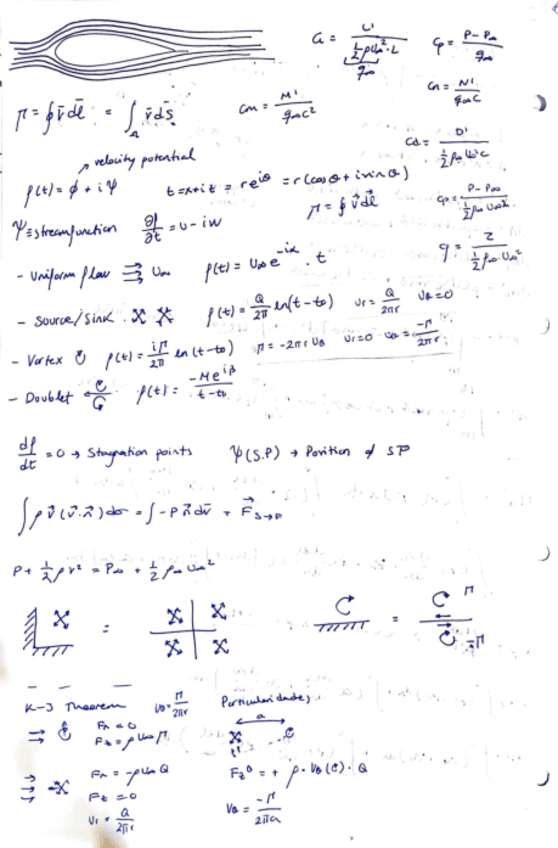 Cl = L' / ½ρU∞²·L
q∞
Cp = P-P∞ / q∞
Γ = ∮v̄dl̄ = ∫ v̄ds̄
Cm = M' / q∞c²
Cn = N' / q∞c
Cd = D' / ½ρ∞U∞²c
velocity potential
f(t) = ϕ + iψ
t=x+iz = re^iθ = r(cosθ + i sinθ)
Γ = ∮v⃗dl⃗
Cp = P-P∞ / ½ρ∞U∞²
ψ = streamfunction
∂f/∂t = u - iw
- Uniform flow ⇉ U∞
f(t) = U∞e^-iα · t
q = 2 / ½ρ∞·U∞²
- Source/sink
f(t) = Q/2π ln(t-t0)
Ur = Q/2πr
Uθ=0
- Vortex ↻
f(t) = iΓ/2π ln(t-t0)
Γ = -2πrUθ
Ur=0
Uθ = -Γ/2πr
- Doublet
f(t) = -Me^iβ / t-t0
df/dt = 0 → Stagnation points
ψ(S.P) → Position of SP
∫ρv⃗(v⃗·n⃗)dσ = ∫-Pn⃗dσ + F⃗s→p
P + ½ρv² = P∞ + ½ρ∞U∞²
=
=
Γ
-Γ
K-J Theorem
Uθ = Γ/2πr
Particularidades
Fx = 0
Fz = ρU∞Γ
a
Fx = -ρU∞Q
Fz = 0
Ur = Q/2πr
Fz = + ρ·Vθ(c)·Q
Vθ = -Γ/2πa